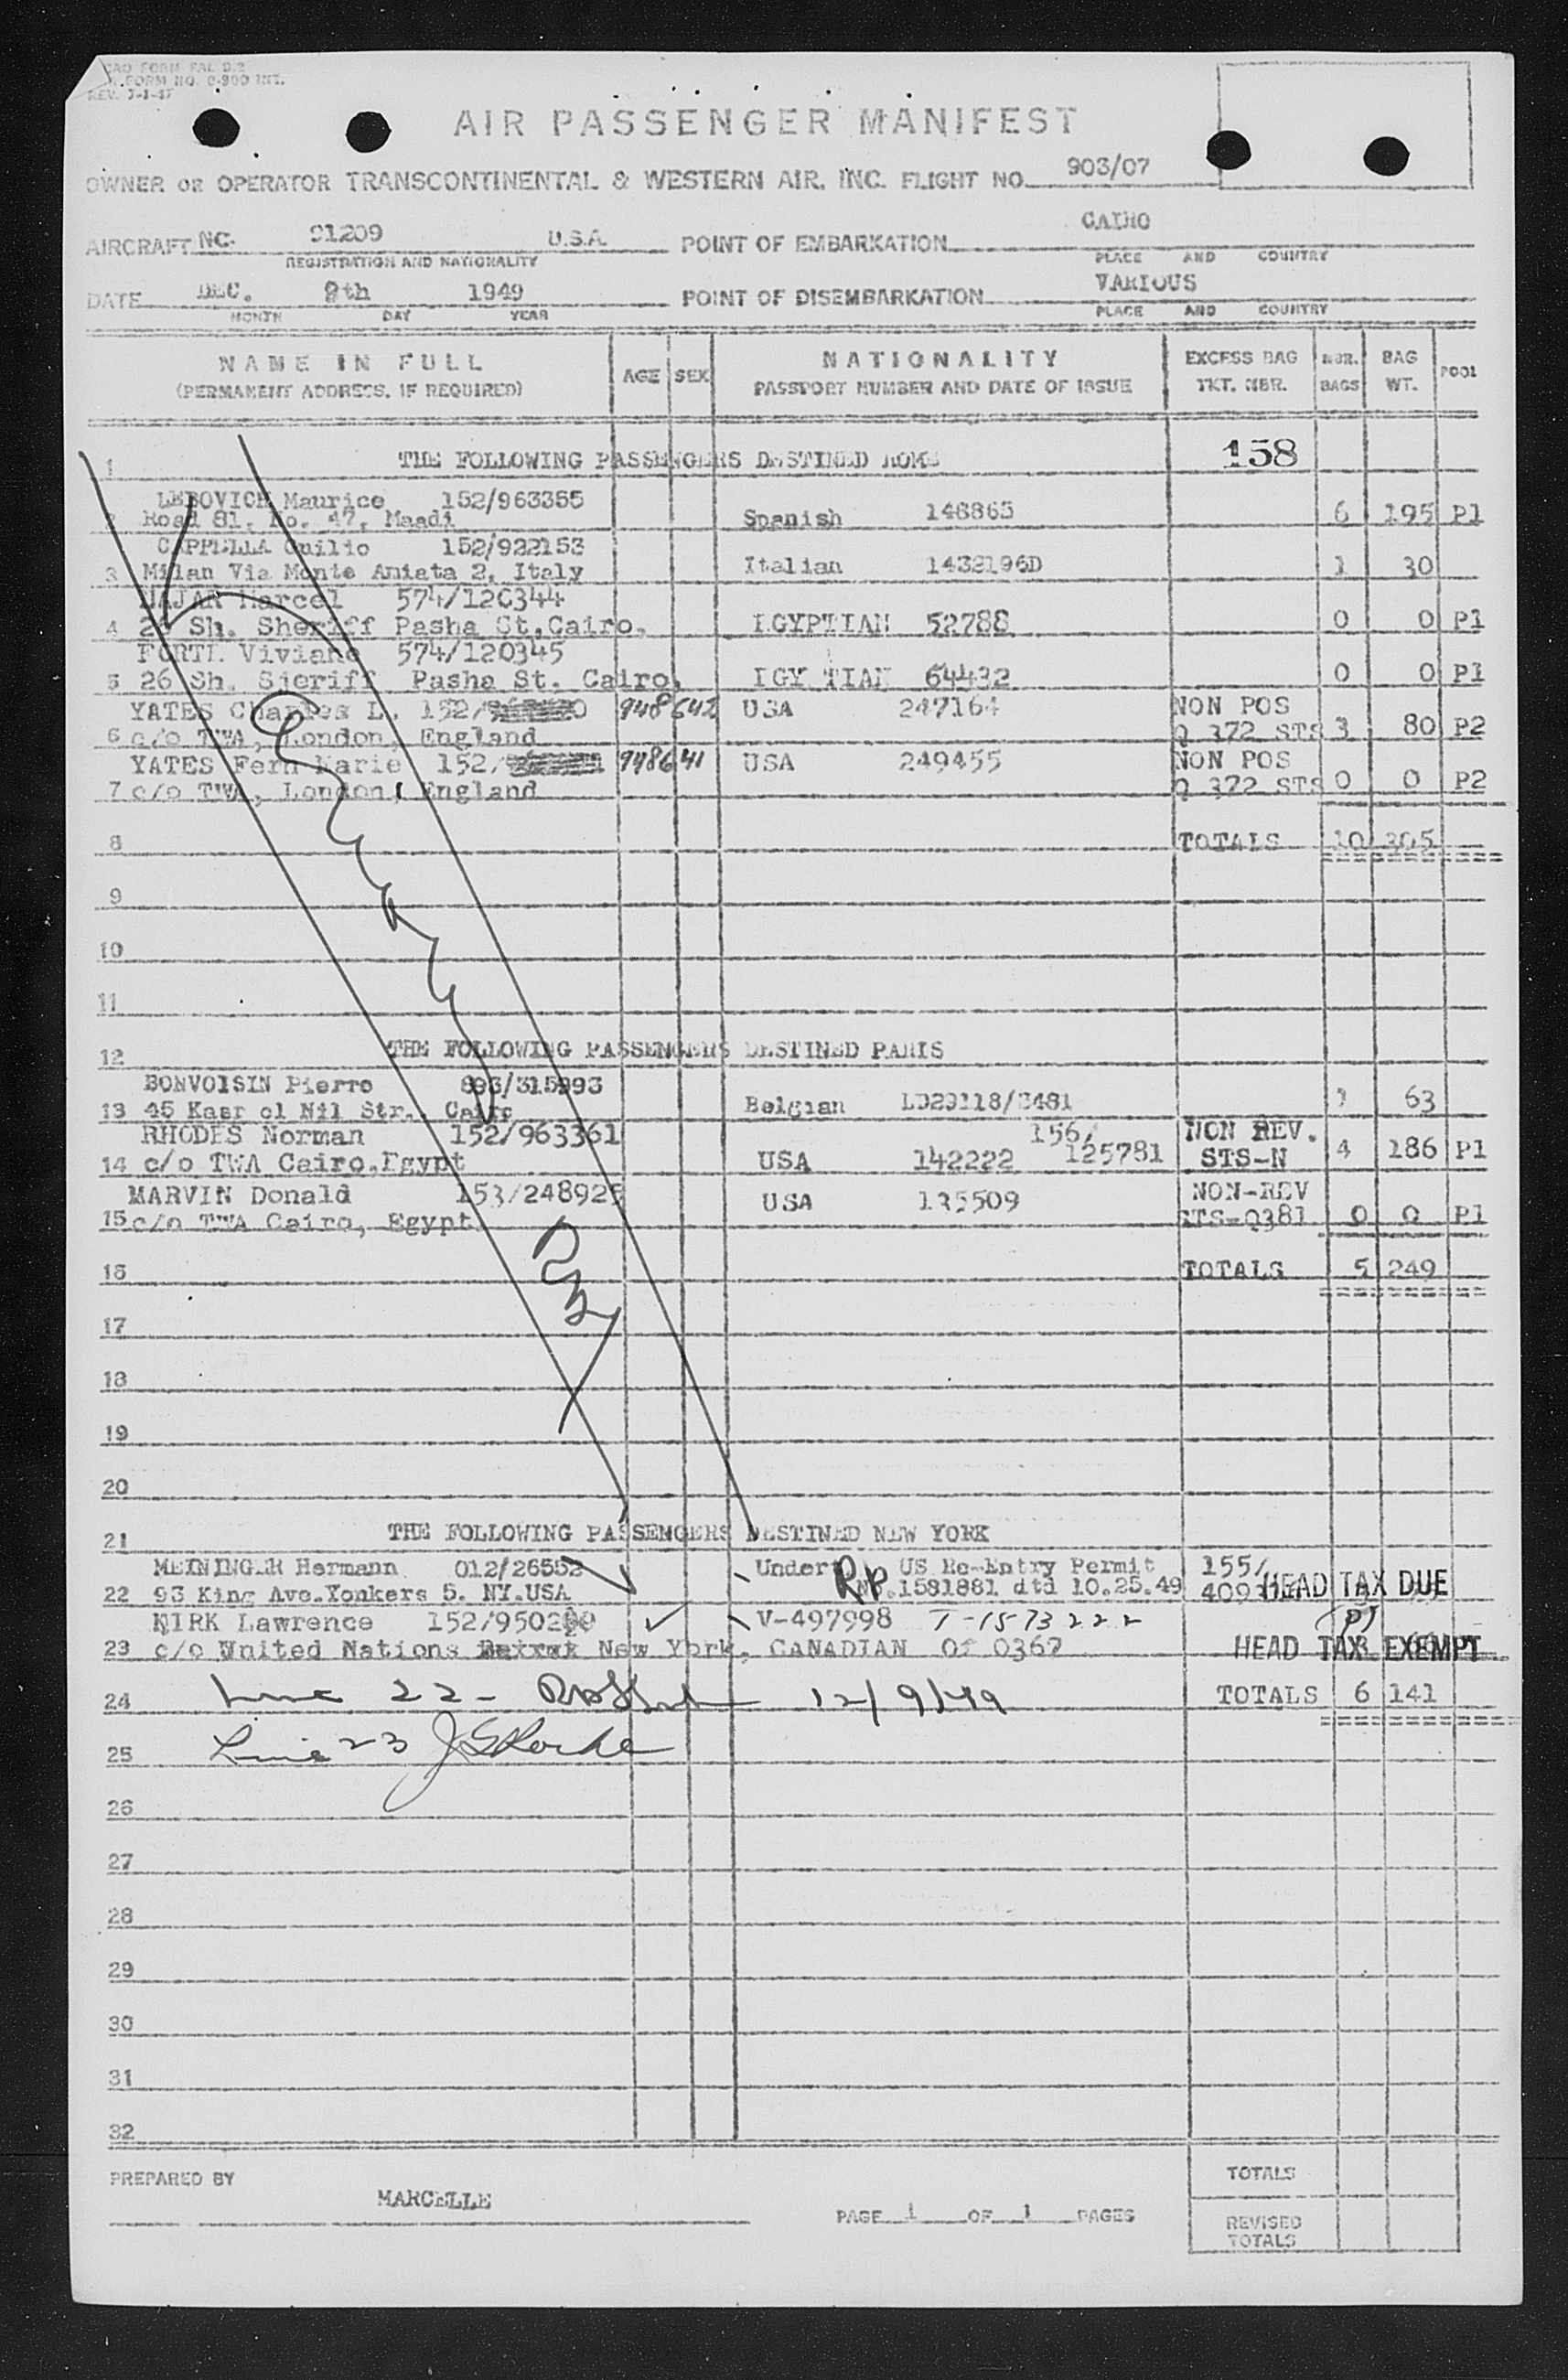 ICAO FORM FAL D.2
FORM NO. C-300 INT.
REV. 7-1-47
AIR PASSENGER MANIFEST
OWNER OR OPERATOR TRANSCONTINENTAL & WESTERN AIR, INC. FLIGHT NO. 903/07
AIRCRAFT NC- 91209 U.S.A. POINT OF EMBARKATION CAIRO
REGISTRATION AND NATIONALITY PLACE AND COUNTRY
DATE DEC. 8th 1949 POINT OF DISEMBARKATION VARIOUS
MONTH DAY YEAR PLACE AND COUNTRY
NAME IN FULL AGE SEX NATIONALITY EXCESS BAG NBR. BAG POOL
(PERMANENT ADDRESS, IF REQUIRED) PASSPORT NUMBER AND DATE OF ISSUE TKT. NBR. BAGS WT.
1 THE FOLLOWING PASSENGERS DESTINED ROME 158
LEBOVICH Maurice 152/963355
2 Road 81, No. 47, Maadi Spanish 148865 6 195 P1
CAPPELLA Ouilio 152/922153
3 Milan Via Monte Amiata 2, Italy Italian 1432196D 1 30
NAJAR Marcel 574/120344
4 26 Sh. Sheriff Pasha St. Cairo. EGYPTIAN 52788 0 0 P1
FORTE Viviane 574/120345
5 26 Sh. Sieriff Pasha St. Cairo. EGYPTIAN 64432 0 0 P1
YATES Charles L. 152/ 948642 USA 247164 NON POS
6 c/o TWA, London, England Q 372 STS 3 80 P2
YATES Fern Marie 152/ 948641 USA 249455 NON POS
7 c/o TWA, London, England Q 372 STS 0 0 P2
8 TOTALS 10 305
9
10
11
12 THE FOLLOWING PASSENGERS DESTINED PARIS
BONVOISIN Pierre 893/315993
13 45 Kasr el Nil Str., Cairo Belgian LD29118/3481 1 63
RHODES Norman 152/963361 156/ NON REV.
14 c/o TWA Cairo, Egypt USA 142222 125781 STS-N 4 186 P1
MARVIN Donald 153/248925 USA 135509 NON-REV
15 c/o TWA Cairo, Egypt STS-Q381 0 0 P1
16 TOTALS 5 249
17
18
19
20
21 THE FOLLOWING PASSENGERS DESTINED NEW YORK
MEININGER Hermann 012/26552 Under RP US Re-Entry Permit 155/
22 93 King Ave. Yonkers 5. NY. USA No. 1581881 dtd 10.25.49 HEAD TAX DUE
KIRK Lawrence 152/950290 V-497998 T-1573222
23 c/o United Nations New York, CANADIAN Of 0367 HEAD TAX EXEMPT
24 Line 22- 12/9/49 TOTALS 6 141
25 Line 23
26
27
28
29
30
31
32
PREPARED BY MARCELLE
PAGE 1 OF 1 PAGES
TOTALS
REVISED
TOTALS